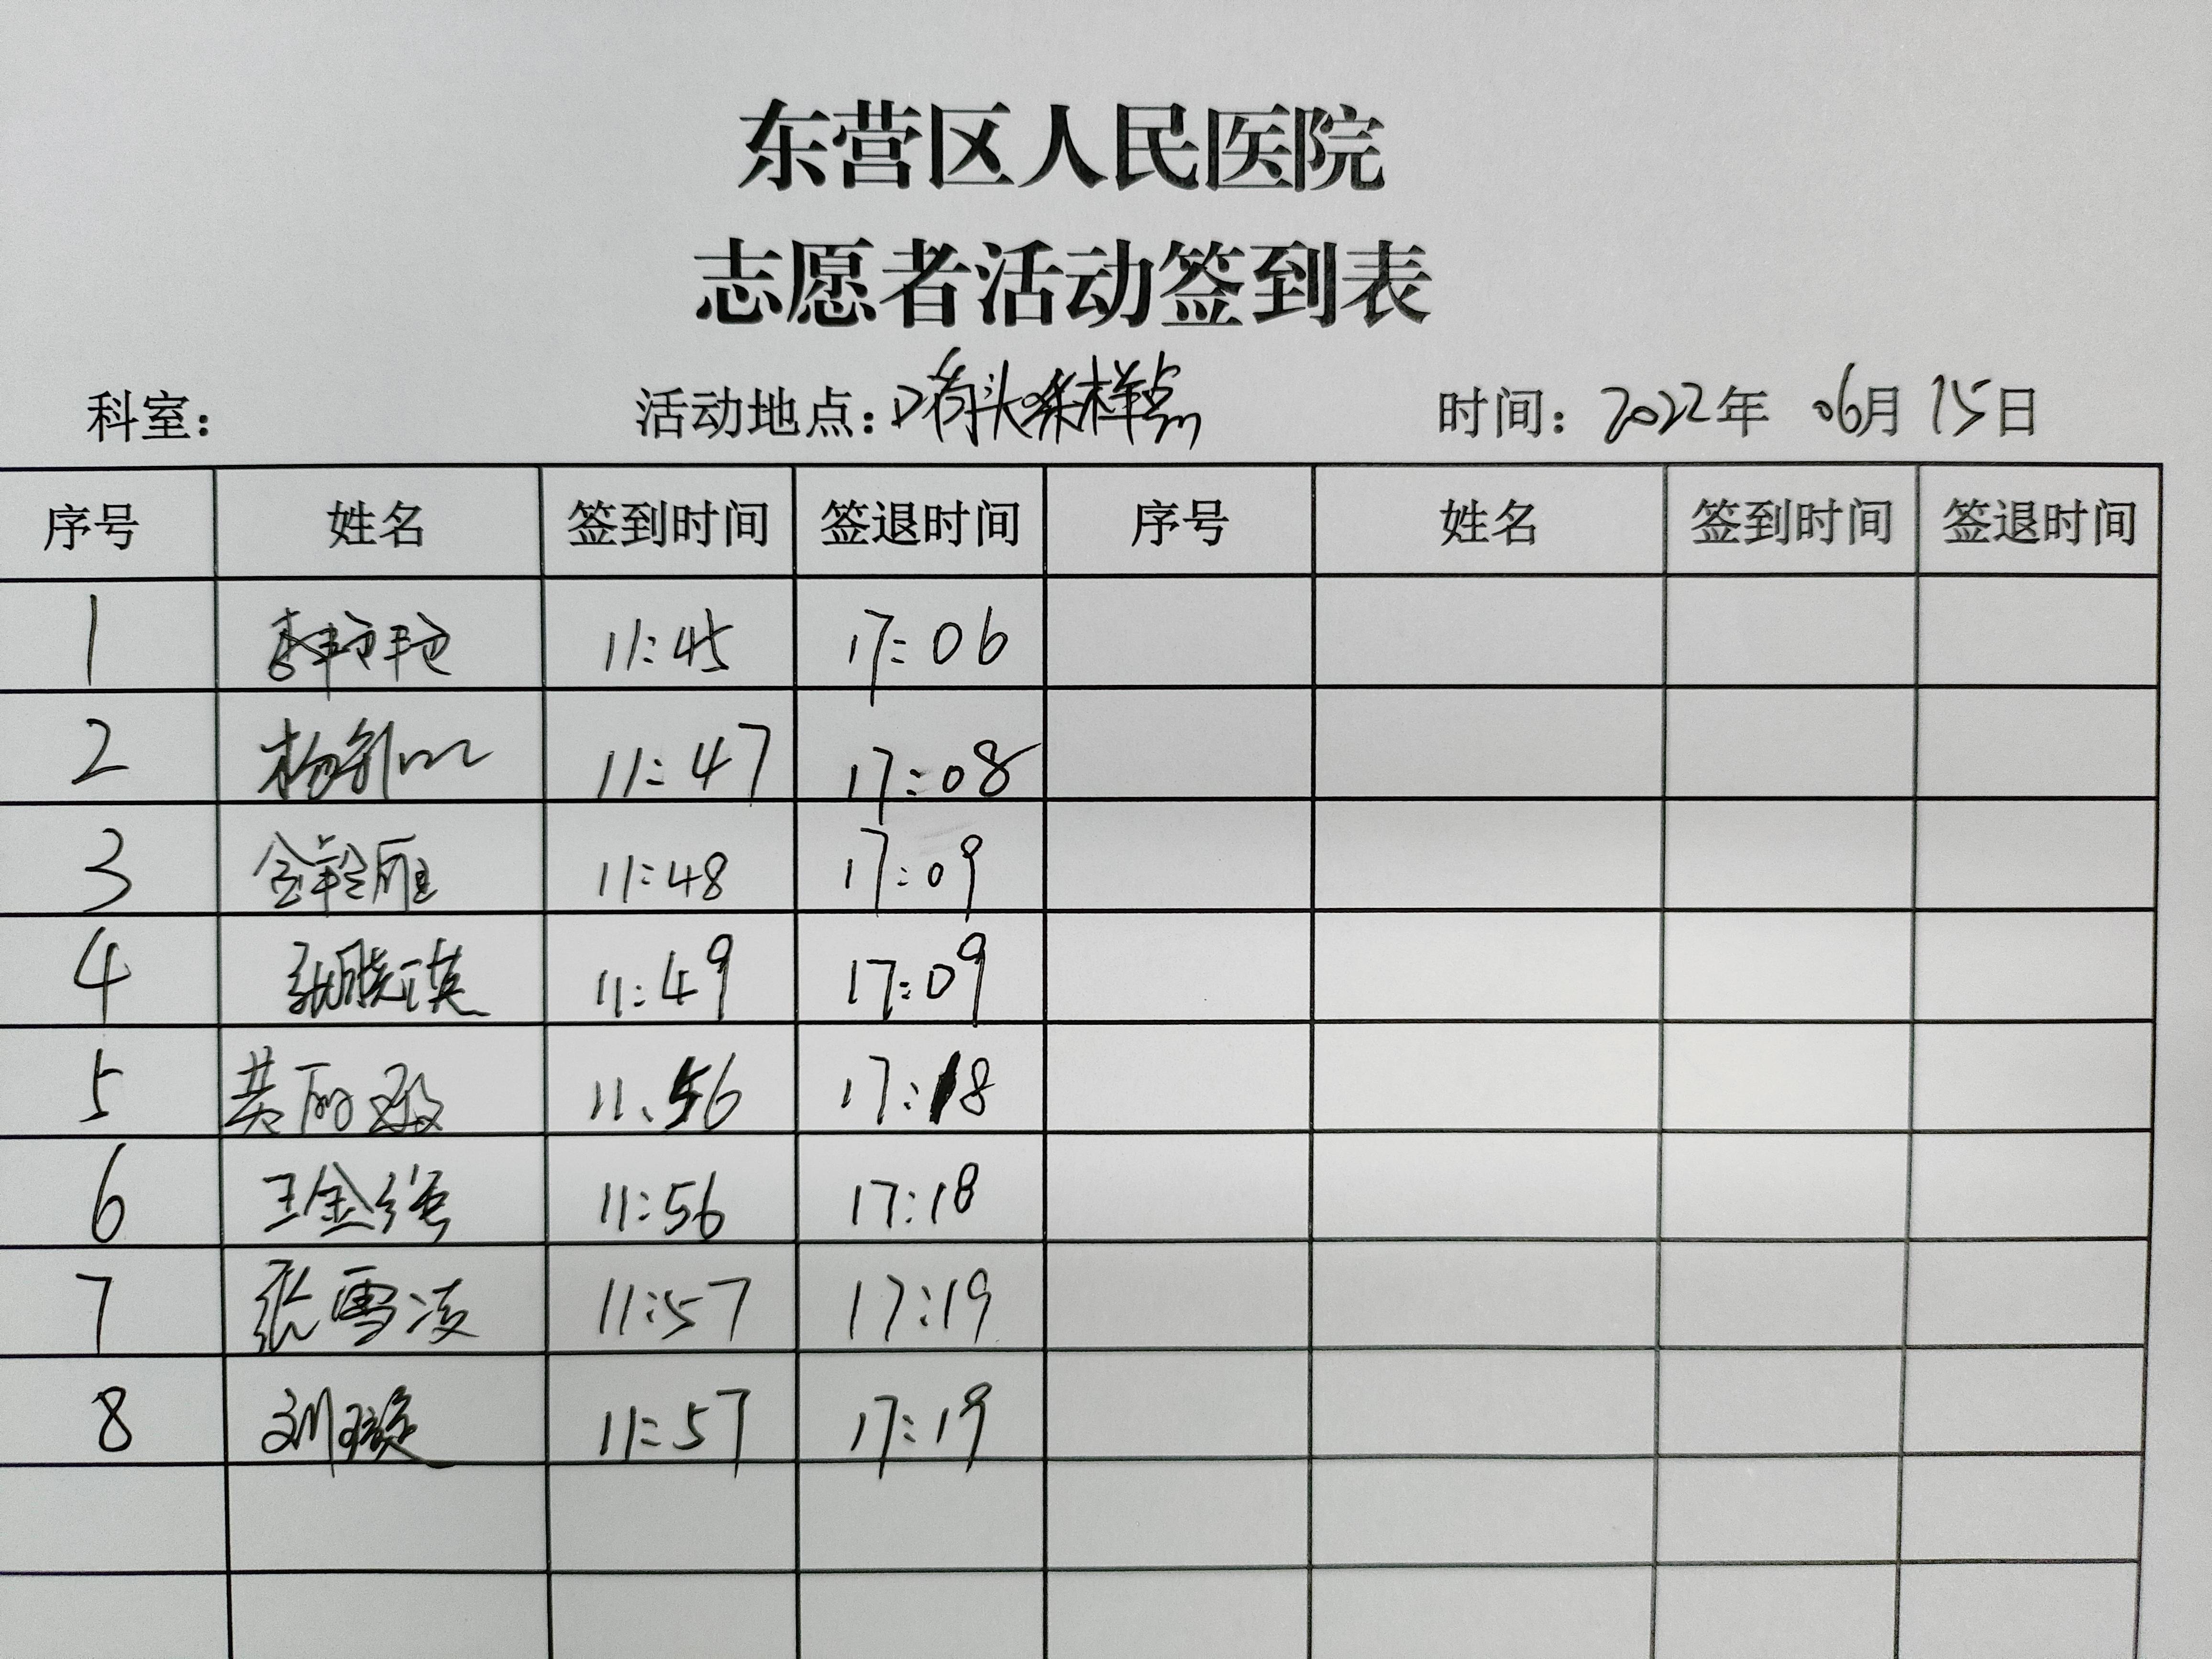 东营区人民医院
志愿者活动签到表
科室： 活动地点： 采样点 时间：2022年 06月 15日
序号 姓名 签到时间 签退时间 序号 姓名 签到时间 签退时间
1 李艳艳 11:45 17:06
2 杨 11:47 17:08
3 11:48 17:09
4 张晓瑛 11:49 17:09
5 11:56 17:18
6 王金 11:56 17:18
7 张雪凌 11:57 17:19
8 刘璇 11:57 17:19